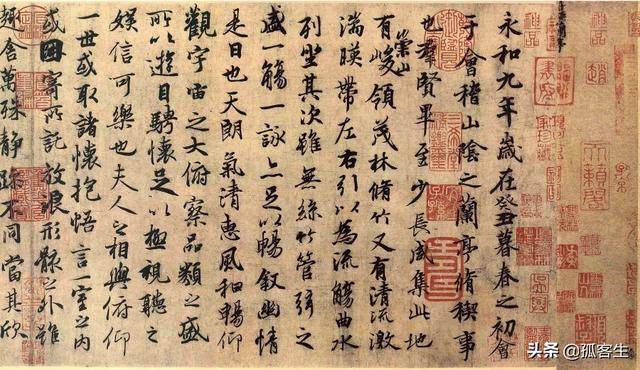 永和九年歲在癸丑暮春之初會
于會稽山陰之蘭亭脩稧事
也羣賢畢至少長咸集此地
有崇山峻領茂林脩竹又有清流激
湍暎帶左右引以為流觴曲水
列坐其次雖無絲竹管弦之
盛一觴一詠亦足以暢敘幽情
是日也天朗氣清惠風和暢仰
觀宇宙之大俯察品類之盛
所以遊目騁懷足以極視聽之
娛信可樂也夫人之相與俯仰
一世或取諸懷抱悟言一室之內
或因寄所託放浪形骸之外雖
趣舍萬殊静躁不同當其欣
头条 @孤客生